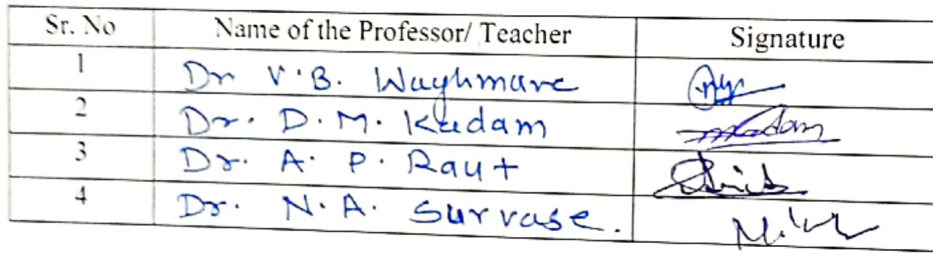 Sr. No Name of the Professor/ Teacher Signature
1 Dr V.B. Waghmare
2 Dr. D.M. Kadam
3 Dr. A. P. Raut
4 Dr. N.A. Survase.